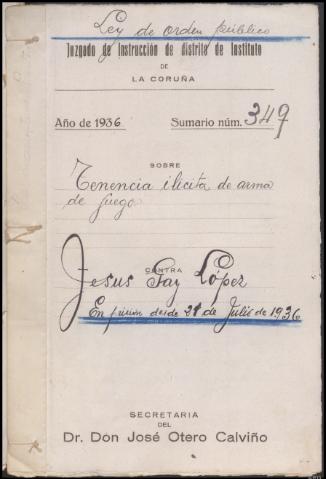 Ley de orden público
Juzgado de Instrucción de distrito de Instituto
DE
LA CORUÑA
Año de 1936 Sumario núm. 349
SOBRE
Tenencia ilicita de arma
de fuego
CONTRA
Jesus Fay López
En prision desde 21 de Julio de 1936
SECRETARIA
DEL
Dr. Don José Otero Calviño